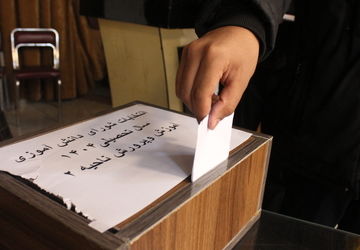 انتخابات شورای دانش آموزی
سال تحصیلی ۱۴۰۴
آموزش و پرورش ناحیه ۲